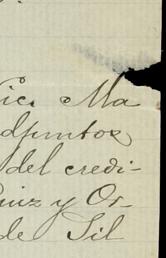 ic. Ma
djuntos
del credi-
uiz y Or-
de Sil